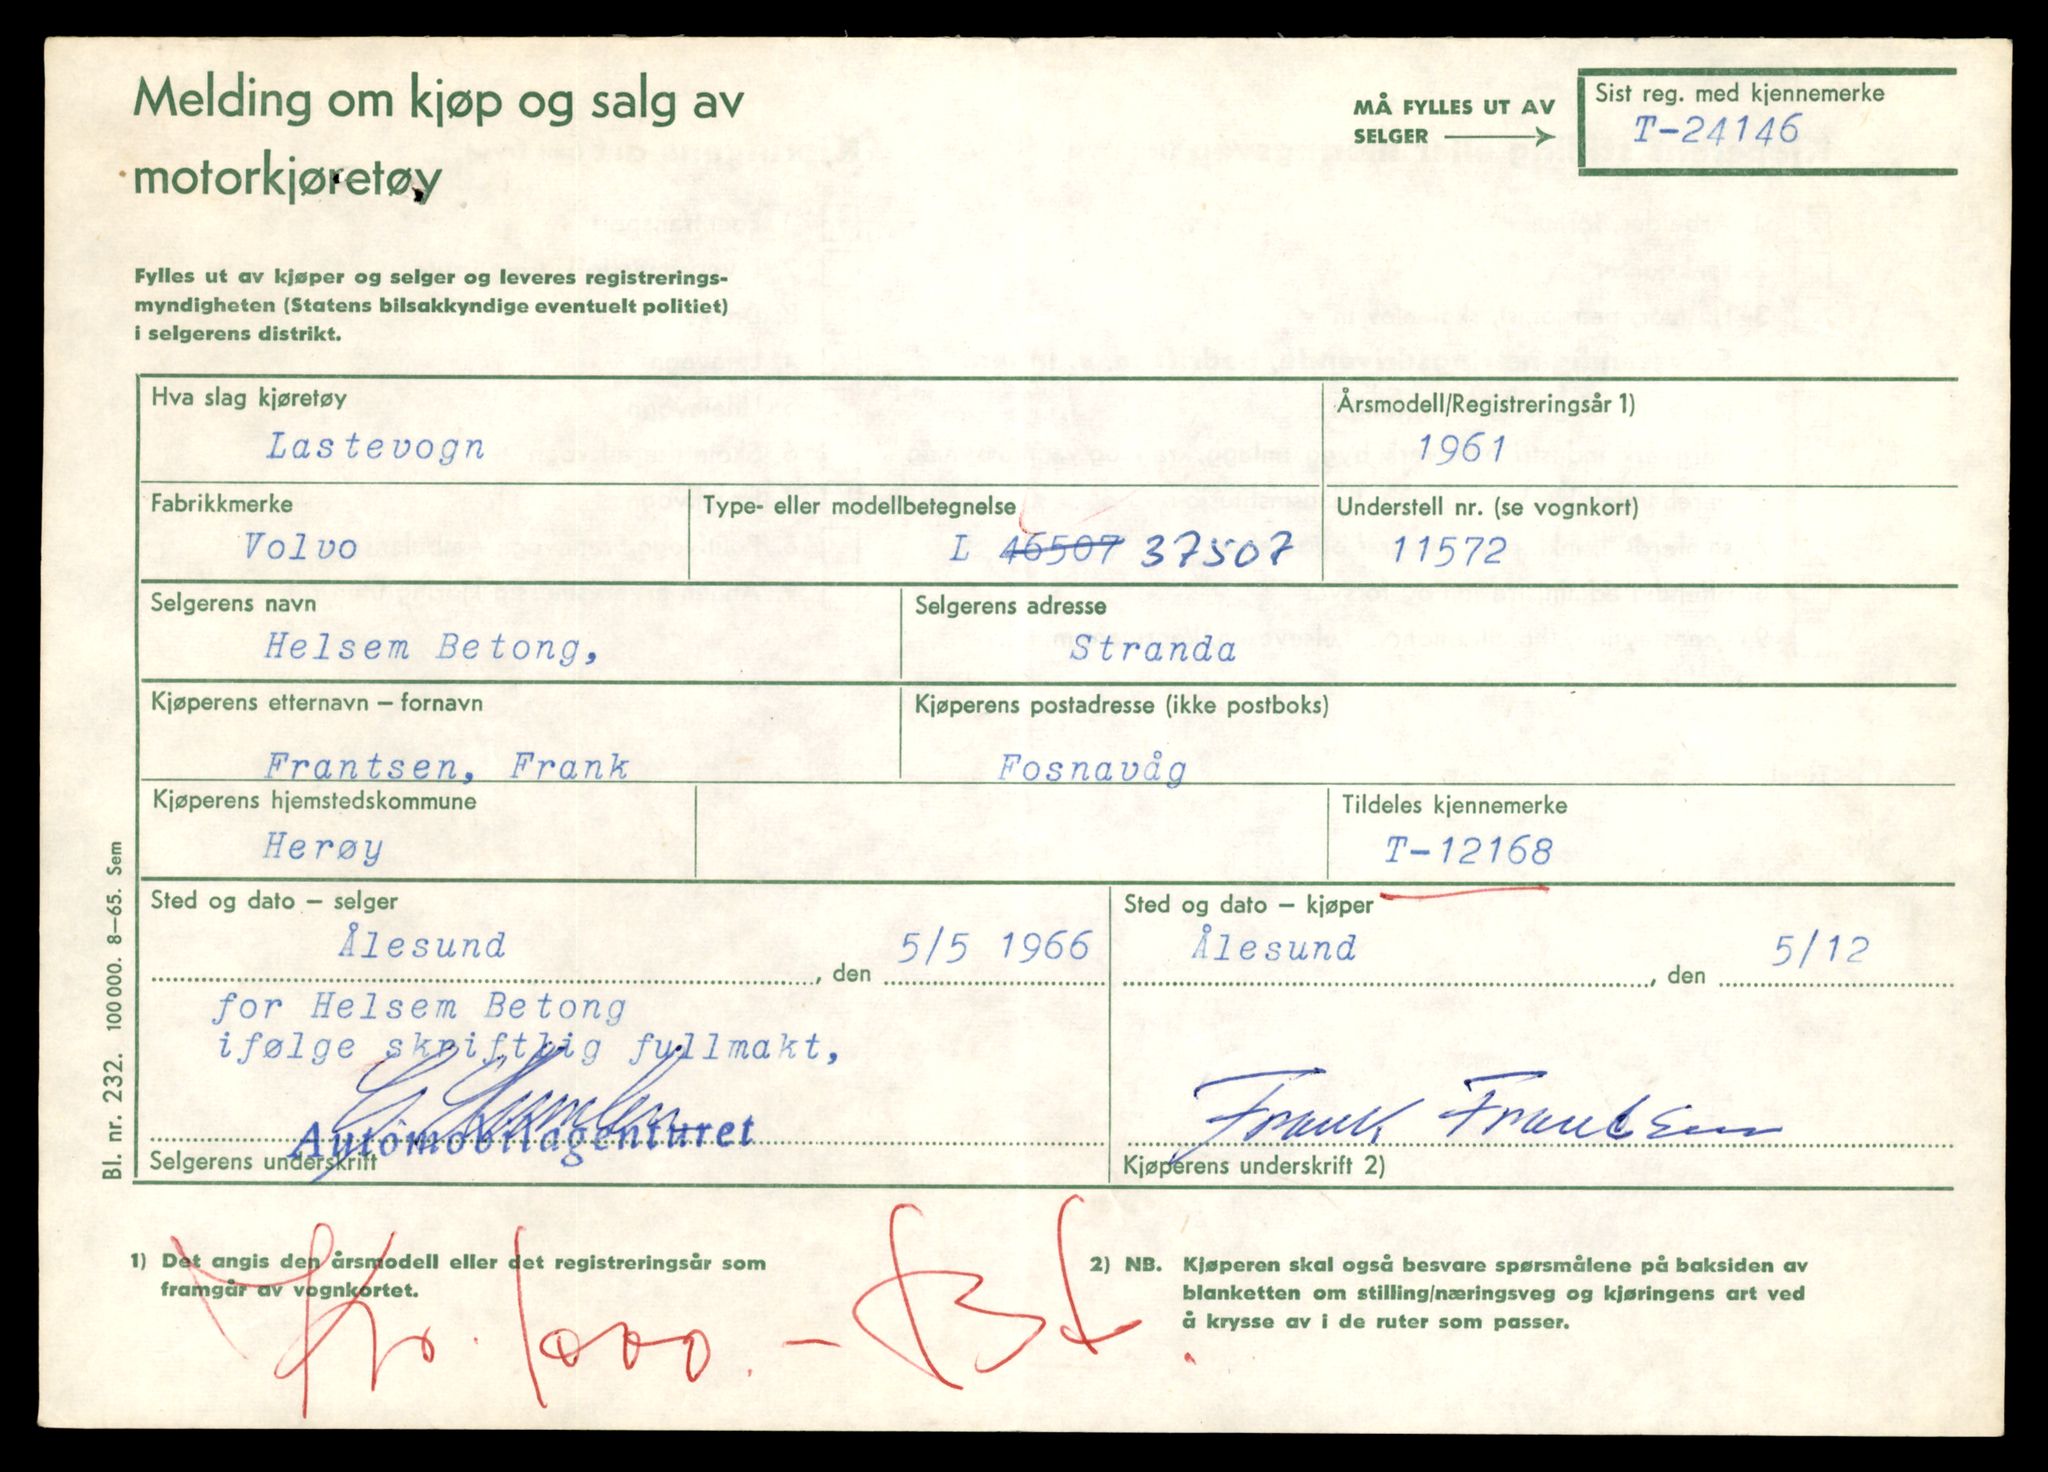 Melding om kjøp og salg av
motorkjøretøy
MÅ FYLLES UT AV
SELGER
Sist reg. med kjennemerke
T-24146
Fylles ut av kjøper og selger og leveres registrerings-
myndigheten (Statens bilsakkyndige eventuelt politiet)
i selgerens distrikt.
Hva slag kjøretøy
Lastevogn
Årsmodell/Registreringsår 1)
1961
Fabrikkmerke
Volvo
Type- eller modellbetegnelse
L 46507 37507
Understell nr. (se vognkort)
11572
Selgerens navn
Helsem Betong,
Selgerens adresse
Stranda
Kjøperens etternavn – fornavn
Frantsen, Frank
Kjøperens postadresse (ikke postboks)
Fosnavåg
Kjøperens hjemstedskommune
Herøy
Tildeles kjennemerke
T-12168
Sted og dato – selger
Ålesund , den 5/5 1966
Sted og dato – kjøper
Ålesund , den 5/12
for Helsem Betong
ifølge skriftlig fullmakt,
Automobilagenturet
Selgerens underskrift
Frank Frantsen
Kjøperens underskrift 2)
Bl. nr. 232. 100 000. 8–65. Sem
1) Det angis den årsmodell eller det registreringsår som
framgår av vognkortet.
2) NB. Kjøperen skal også besvare spørsmålene på baksiden av
blanketten om stilling/næringsveg og kjøringens art ved
å krysse av i de ruter som passer.
Kr. 1000.-